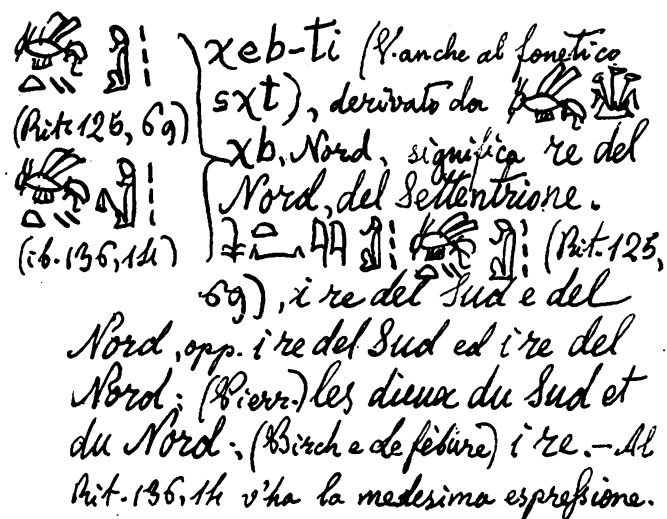 χeb-ti (V. anche al fonetico
sχt), derivato da
(Rit. 125, 69)
χb, Nord, significa re del
Nord, del Settentrione.
(ib. 136, 14) (Rit. 125,
69), i re del Sud e del
Nord, opp. i re del Sud ed i re del
Nord; (Pierr.) les dieux du Sud et
du Nord; (Birch e Lefèbure) i re. — Al
Rit. 136, 14 v'ha la medesima espressione.